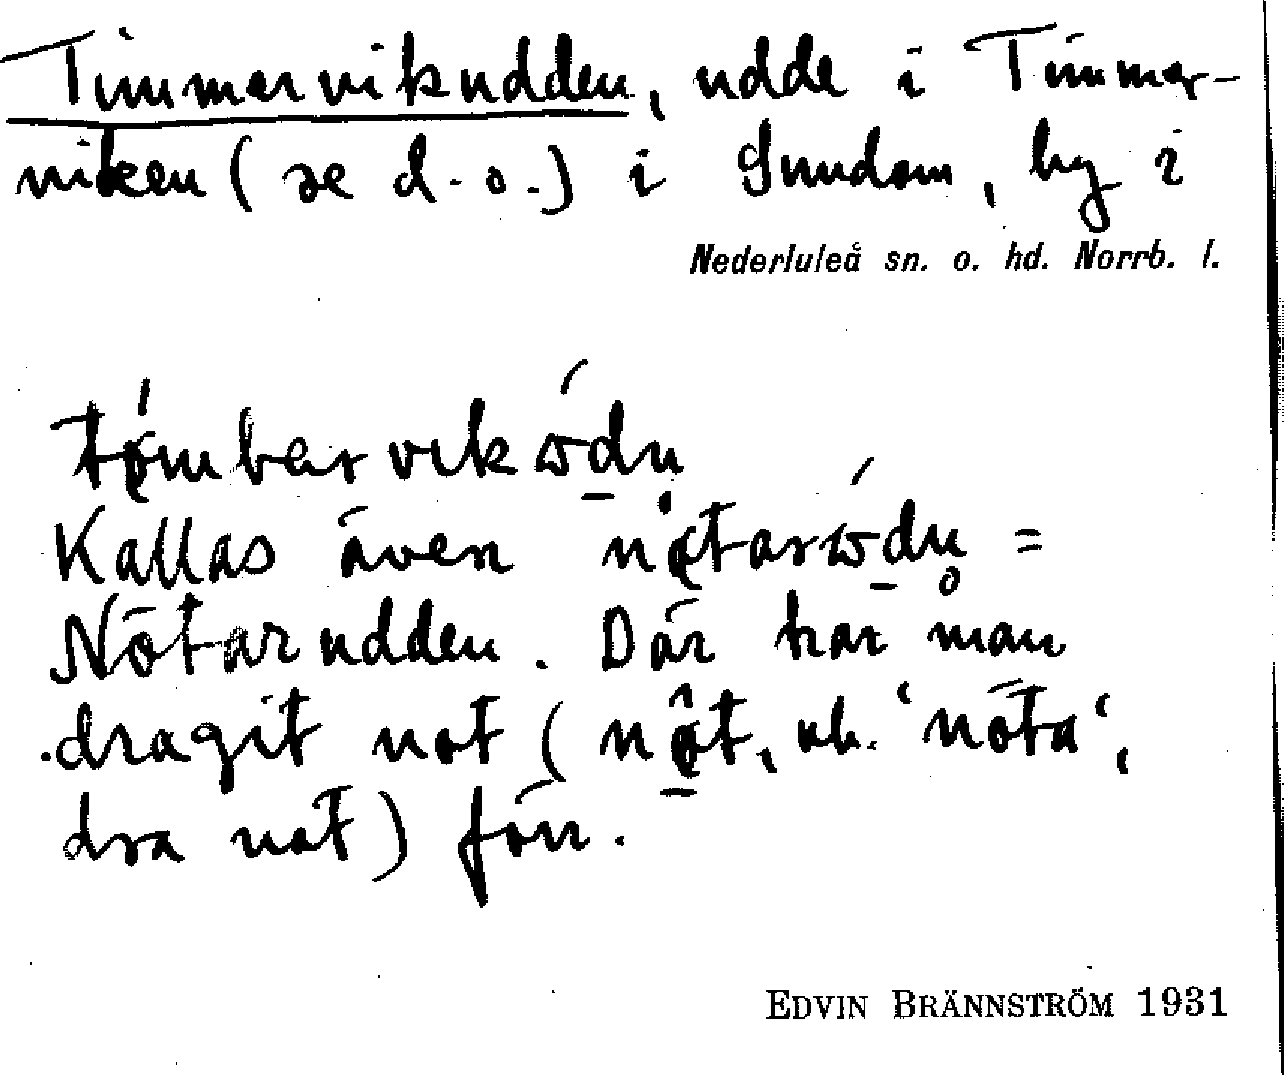 Timmervikudden, udde i Timmer-
viken (se d. o.) i Sundom, by i
Nederluleå sn. o. hd. Norrb. l.
Kallas även =
Nötarudden. Där har man
dragit not ( vb. 'nöta',
dra not) förr.
EDVIN BRÄNNSTRÖM 1931